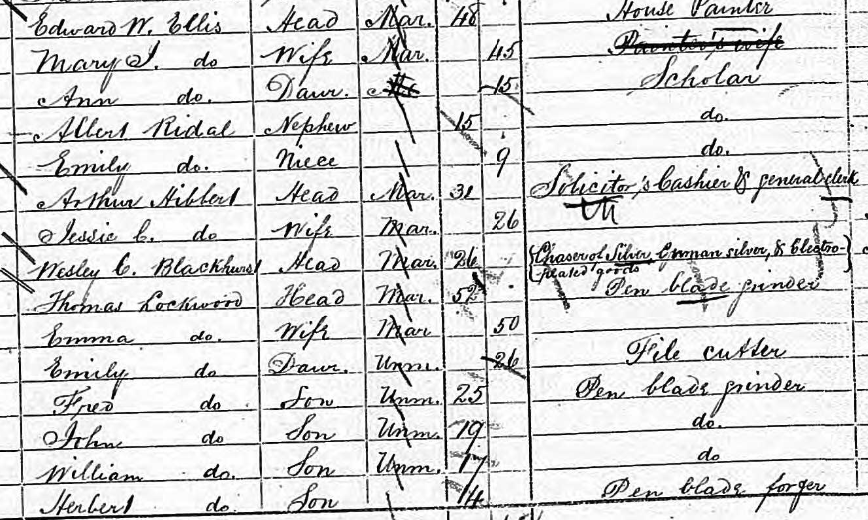 Edward W. Ellis Head Mar. 48 House Painter
Mary J. do Wife Mar. 45 Painter's wife
Ann do. Daur. 15 Scholar
Albert Ridal Nephew 15 do.
Emily do. Niece 9 do.
Arthur Hibbert Head Mar. 31 Solicitor's Cashier & general clerk
Jessie C. do Wife Mar. 26
Wesley C. Blackhurst Head Mar. 26 Chaser of Silver, German silver, & Electro-
plated goods
Thomas Lockwood Head Mar. 52 Pen blade grinder
Emma do. Wife Mar 50
Emily do Daur. Unm. 26 File cutter
Fred do Son Unm. 25 Pen blade grinder
John do Son Unm. 19 do.
William do. Son Unm. 17 do
Herbert do. Son 14 Pen blade forger